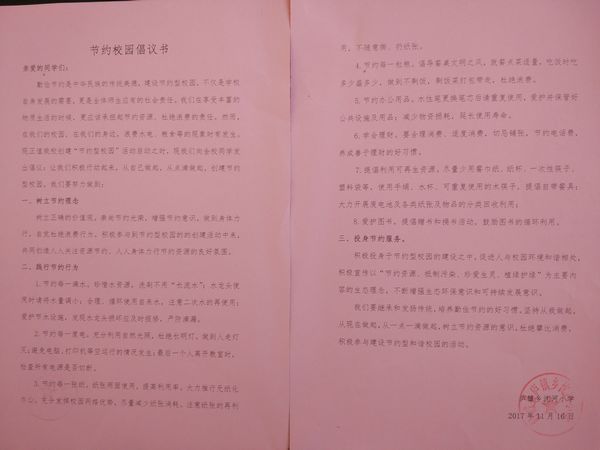 节约校园倡议书
亲爱的同学们：
勤俭节约是中华民族的传统美德，建设节约型校园，不仅是学校
自身发展的需要，更是全体师生应有的社会责任。我们在享受丰富的
物质生活的时候，更应该承担起节约资源、杜绝浪费的责任。然而，
在我们的校园，在我们的身边，浪费水电、粮食等的现象时有发生。
现正值我校创建“节约型校园”活动启动之时，现我们向全校同学发
出倡议：让我们积极行动起来，从自己做起，从点滴做起，创建节约
型校园，我们要努力做到：
一、树立节约理念
树立正确的价值观，崇尚节约光荣，增强节约意识，做到身体力
行，自觉杜绝浪费行为。积极参与到节约型校园的的创建活动中来，
共同创造人人关注资源节约，人人身体力行节约资源的良好氛围。
二、践行节约行为
1.节约每一滴水。珍惜水资源，洗刷不用“长流水”；水龙头使
用时请将水量调小；合理、循环使用自来水，注意二次水的再使用；
爱护节水设施，发现水龙头损坏应及时报修，严防滴漏。
2.节约每一度电。充分利用自然光照，杜绝长明灯，做到人走灯
灭；避免电脑、打印机等空运行的情况发生；最后一个人离开教室时，
检查所有电源是否切断。
3.节约每一张纸。纸张两面使用，提高利用率。大力推行无纸化
办公，充分发挥校园网络优势，尽量减少纸张消耗。注意纸张的再利
用，不随意撕、扔纸张。
4.节约每一粒粮。倡导餐桌文明之风，就餐点菜适量，吃饭时吃
多少盛多少，做到不剩饭，剩饭菜打包带走，杜绝浪费。
5.节约办公用品。水性笔更换笔芯后请重复使用，爱护并保管好
公共设施及用品；减少物资损耗，延长使用寿命。
6.学会理财。要合理消费、适度消费，切忌铺张，节约电话费，
养成善于理财的好习惯。
7.提倡利用可再生资源。尽量少用餐巾纸、纸杯、一次性筷子、
塑料袋等，使用手绢、水杯、可重复使用的木筷子，提倡自带餐具；
大力开展废电池及各类纸张及物品的分类回收利用；
8.爱护图书。提倡赠书和捐书活动，鼓励图书的循环利用。
三、投身节约服务。
积极投身于节约型校园的建设之中，促进人与校园环境和谐相处，
积极宣传以“节约资源、抵制污染、珍爱生灵、植绿护绿”为主要内
容的生态理念，不断增强生态环保意识和可持续发展意识。
我们要继承和发扬传统，培养勤俭节约的好习惯。坚持从我做起，
从现在做起，从一点一滴做起，树立节约资源的意识；杜绝攀比消费，
积极参与建设节约型和谐校园的活动。
乡团河小学
2017年11月16日